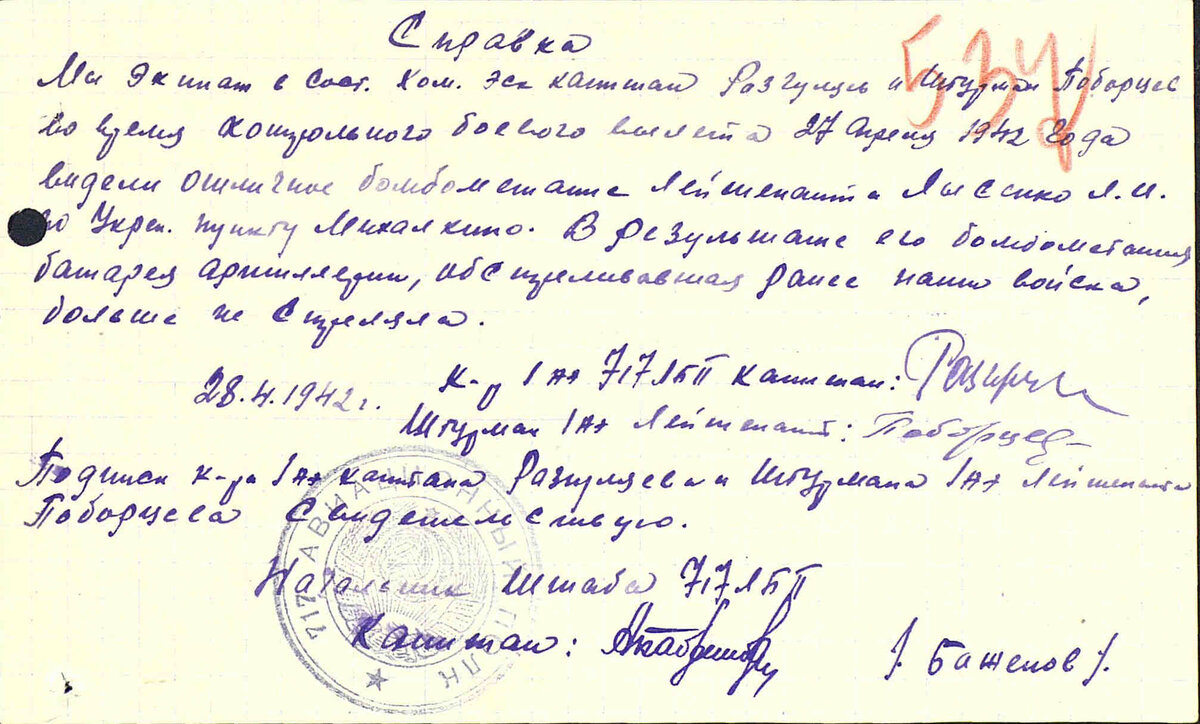 Справка
537
Мы Экипаж в сост. Ком. Эск капитан Разгуляев и Штурман Поборцев
во время контрольного боевого вылета 27 Апреля 1942 Года
видели отличное бомбометание Лейтенанта Лысенко Л.И.
по Укреп. пункту Михалкино. В результате его бомбометания
батарея артиллерии, обстреливавшая ранее наши войска,
больше не стреляла.
28.4.1942г.
К-р 1 АЭ 717 ЛБП капитан:
Штурман 1АЭ Лейтенант: Поборцев
Подписи к-ра 1АЭ капитана и Штурмана 1АЭ Лейтенанта
Поборцева Свидетельствую.
Начальник Штаба 717 ЛБП
Капитан: /. Баженов /.
717 АВИАЦИОННЫЙ ПОЛК